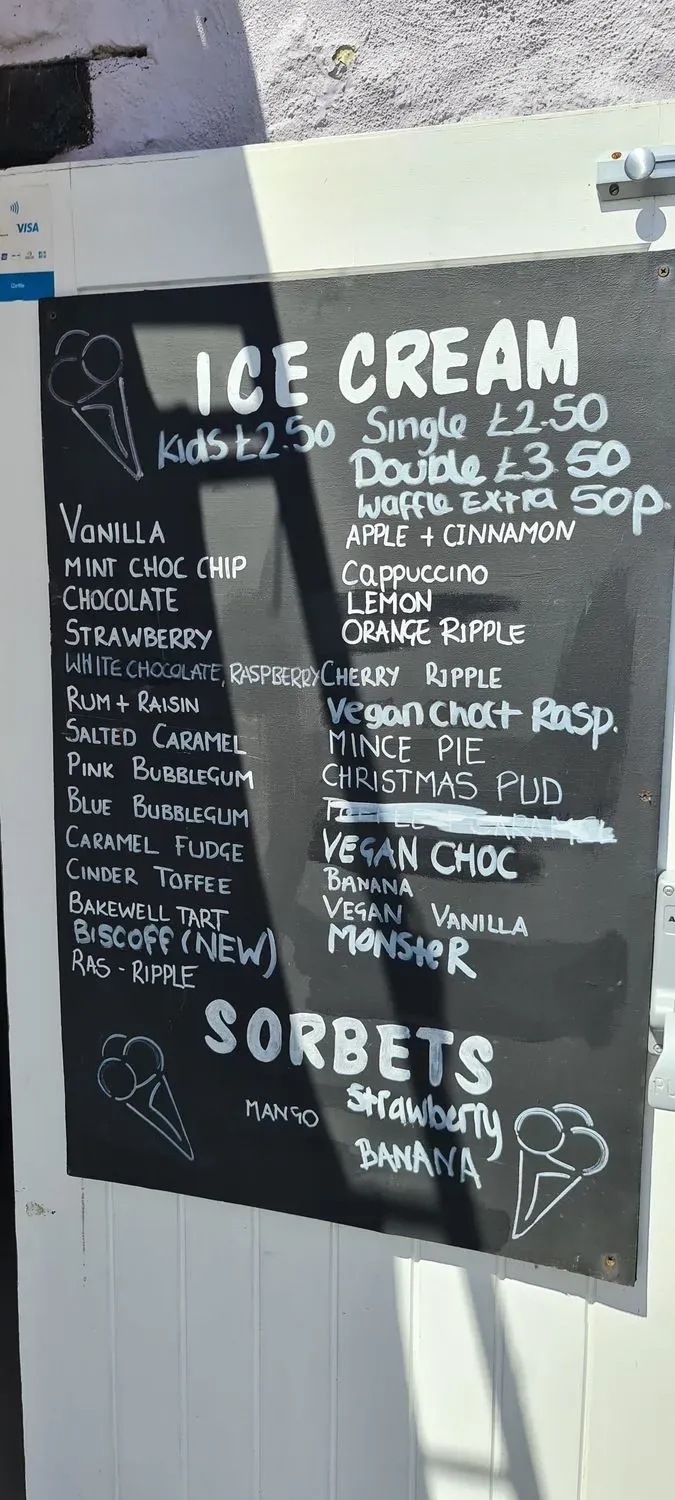 VISA
ICE CREAM
Kids £2.50
Single £2.50
Double £3.50
Waffle Extra 50p.
Vanilla
MINT CHOC CHIP
CHOCOLATE
STRAWBERRY
WHITE CHOCOLATE, RASPBERRY
RUM + RAISIN
SALTED CARAMEL
PINK BUBBLEGUM
BLUE BUBBLEGUM
CARAMEL FUDGE
CINDER TOFFEE
BAKEWELL TART
BISCOFF (NEW)
RAS - RIPPLE
APPLE + CINNAMON
Cappuccino
LEMON
ORANGE RIPPLE
CHERRY RIPPLE
Vegan Choc + Rasp.
MINCE PIE
CHRISTMAS PUD
VEGAN CHOC
BANANA
VEGAN VANILLA
MONSTER
SORBETS
MANGO
Strawberry
BANANA